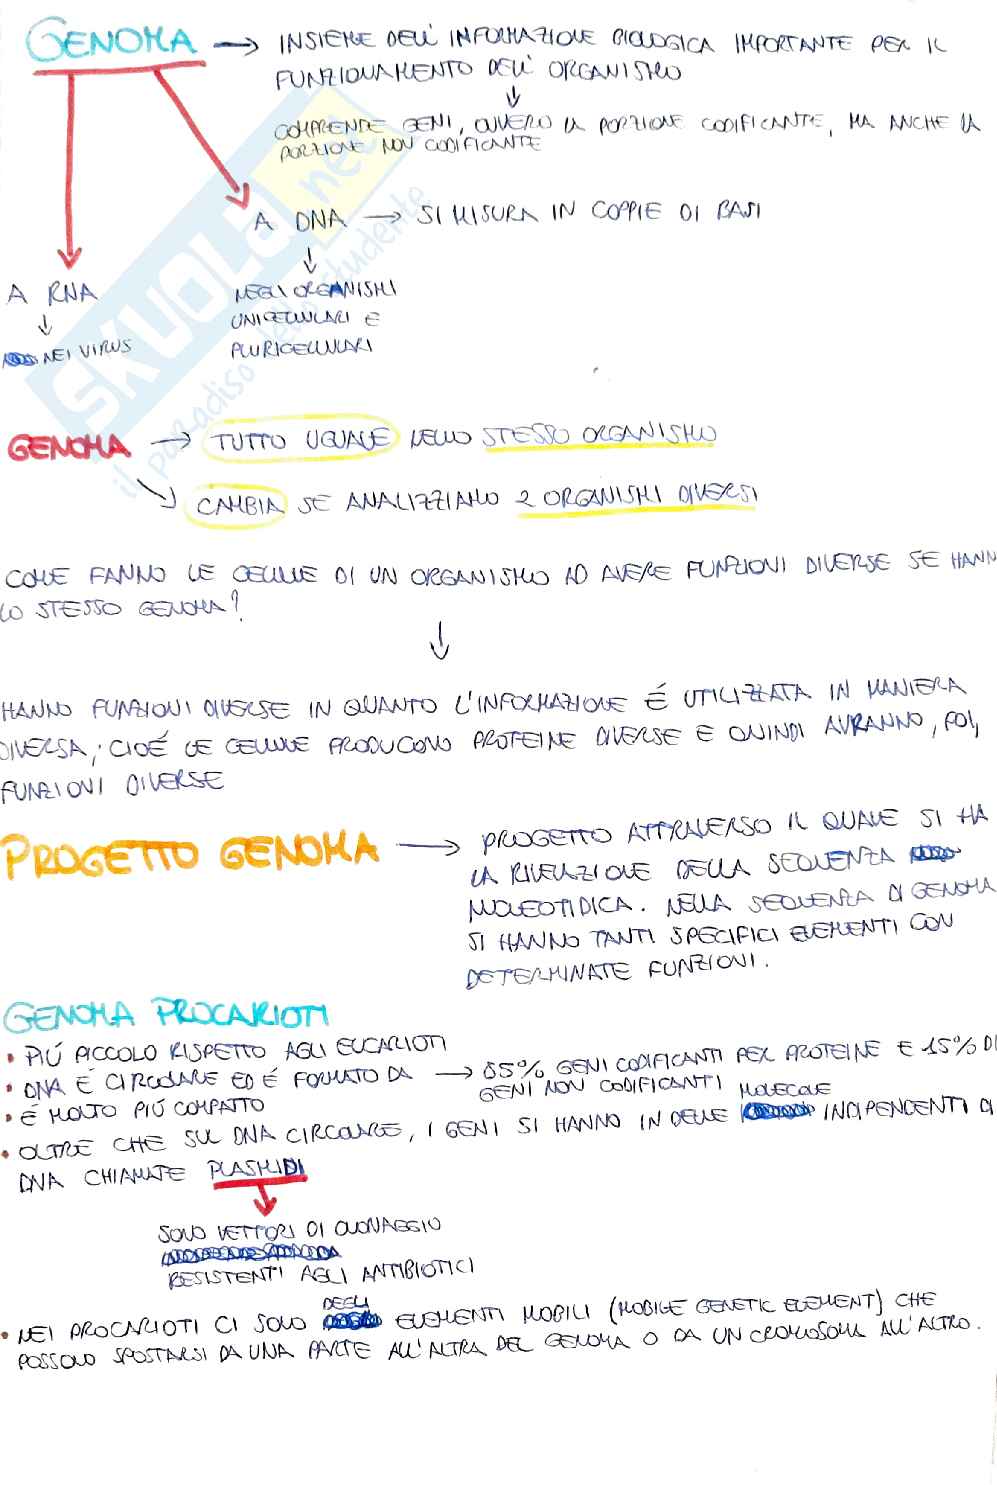 GENOMA → INSIEME DELL'INFORMAZIONE BIOLOGICA IMPORTANTE PER IL
FUNZIONAMENTO DELL'ORGANISMO
↓
COMPRENDE GENI, OVVERO LA PORZIONE CODIFICANTE, MA ANCHE LA
PORZIONE NON CODIFICANTE
A DNA → SI MISURA IN COPPIE DI BASI
↓
A RNA
↓
NEI VIRUS
NEGLI ORGANISMI
UNICELLULARI E
PLURICELLULARI
SKUOLA.net
il paradiso dello studente
GENOMA → TUTTO UGUALE NELLO STESSO ORGANISMO
CAMBIA SE ANALIZZIAMO 2 ORGANISMI DIVERSI
COME FANNO LE CELLULE DI UN ORGANISMO AD AVERE FUNZIONI DIVERSE SE HANN
LO STESSO GENOMA?
↓
HANNO FUNZIONI DIVERSE IN QUANTO L'INFORMAZIONE É UTILIZZATA IN MANIERA
DIVERSA; CIOÉ LE CELLULE PRODUCONO PROTEINE DIVERSE E QUINDI AVRANNO, POI,
FUNZIONI DIVERSE
PROGETTO GENOMA → PROGETTO ATTRAVERSO IL QUALE SI HA
LA RIVELAZIONE DELLA SEQUENZA
NUCLEOTIDICA. NELLA SEQUENZA DI GENOMA
SI HANNO TANTI SPECIFICI ELEMENTI CON
DETERMINATE FUNZIONI.
GENOMA PROCARIOTI
• PIÚ PICCOLO RISPETTO AGLI EUCARIOTI
• DNA É CIRCOLARE ED É FORMATO DA → 85% GENI CODIFICANTI PER PROTEINE E 15% DI
GENI NON CODIFICANTI
• É MOLTO PIÚ COMPATTO
• OLTRE CHE SUL DNA CIRCOLARE, I GENI SI HANNO IN DELLE MOLECOLE INDIPENDENTI DI
DNA CHIAMATE PLASMIDI
SONO VETTORI DI CLONAGGIO
RESISTENTI AGLI ANTIBIOTICI
• NEI PROCARIOTI CI SONO DEGLI ELEMENTI MOBILI (MOBILE GENETIC ELEMENT) CHE
POSSONO SPOSTARSI DA UNA PARTE ALL'ALTRA DEL GENOMA O DA UN CROMOSOMA ALL'ALTRO.